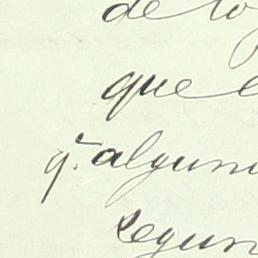 de lo
que e
q.e algun
segun